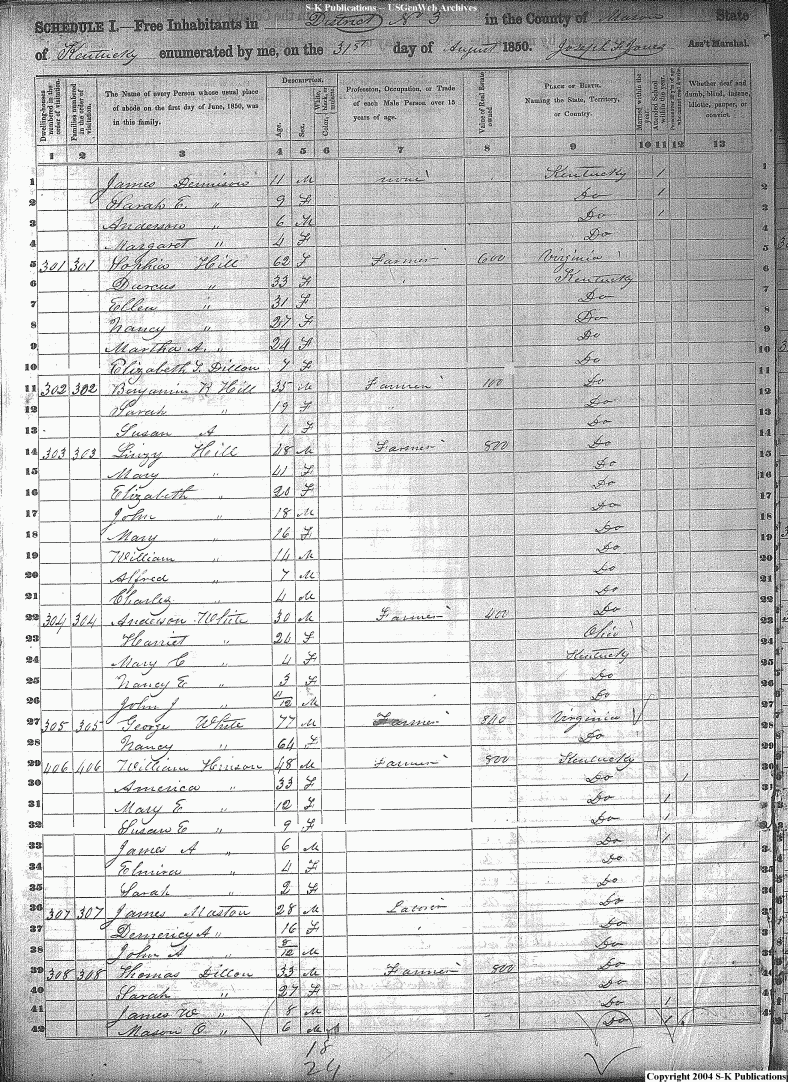 S-K Publications – USGenWeb Archives
SCHEDULE I.—Free Inhabitants in District No 3 in the County of Mason State
of Kentucky enumerated by me, on the 31st day of August 1850. Joseph F. Jones Ass't Marshal.
Dwelling-houses numbered in the order of visitation.
Families numbered in the order of visitation.
The Name of every Person whose usual place of abode on the first day of June, 1850, was in this family.
DESCRIPTION.
Age.
Sex.
Color, White, black, or mulatto.
Profession, Occupation, or Trade of each Male Person over 15 years of age.
Value of Real Estate owned.
PLACE OF BIRTH. Naming the State, Territory, or Country.
Married within the year.
Attended School within the year.
Whether deaf and dumb, blind, insane, idiotic, pauper, or convict.
1 2 3 4 5 6 7 8 9 10 11 12 13
1 James Dennison 11 M none Kentucky 1 1
2 Sarah E. " 9 F Do 1 2
3 Anderson " 6 M Do 1 3
4 Margaret " 4 F Do 4
5 301 301 Sophia Hill 62 F Farmer 600 Virginia 5
6 Darcus " 33 F Kentucky 6
7 Ellen " 31 F Do 7
8 Nancy " 27 F Do 8
9 Martha A. " 24 F Do 9
10 Elizabeth F. Dillon 7 F Do 10
11 302 302 Benjamin R Hill 35 M Farmer 100 Do 11
12 Sarah " 19 F Do 12
13 Susan A 1 F Do 13
14 303 303 Hill 48 M Farmer 800 Do 14
15 Mary " 41 F Do 15
16 Elizabeth " 20 F Do 16
17 John " 18 M Do 17
18 Mary " 16 F Do 18
19 William " 14 M Do 19
20 Alfred " 7 M Do 20
21 Charley " 4 M Do 21
22 304 304 Anderson White 30 M Farmer 400 Do 22
23 Harriet " 26 F Ohio 23
24 Mary C " 4 F Kentucky 24
25 Nancy E " 3 F Do 25
26 John J " 11/12 M Do 26
27 305 305 George White 77 M Farmer 840 Virginia 27
28 Nancy " 64 F Do 28
29 406 406 William Hinson 48 M Farmer 800 Kentucky 29
30 America " 33 F Do 1 30
31 Mary E " 12 F Do 1
32 Susan E " 9 F Do 1
33 James A " 6 M Do 1
34 Elmira " 4 F Do
35 Sarah " 2 F Do
36 307 307 James Maston 28 M Do
37 A " 16 F Do
38 John A " 8/12 M Do 38
39 308 308 Thomas Dillon 33 M Farmer 800 Do 39
40 Sarah " 27 F Do 40
41 James W " 8 M Do 1 41
42 Mason O " 6 M Do 1 42
18
24
Copyright 2004 S-K Publications